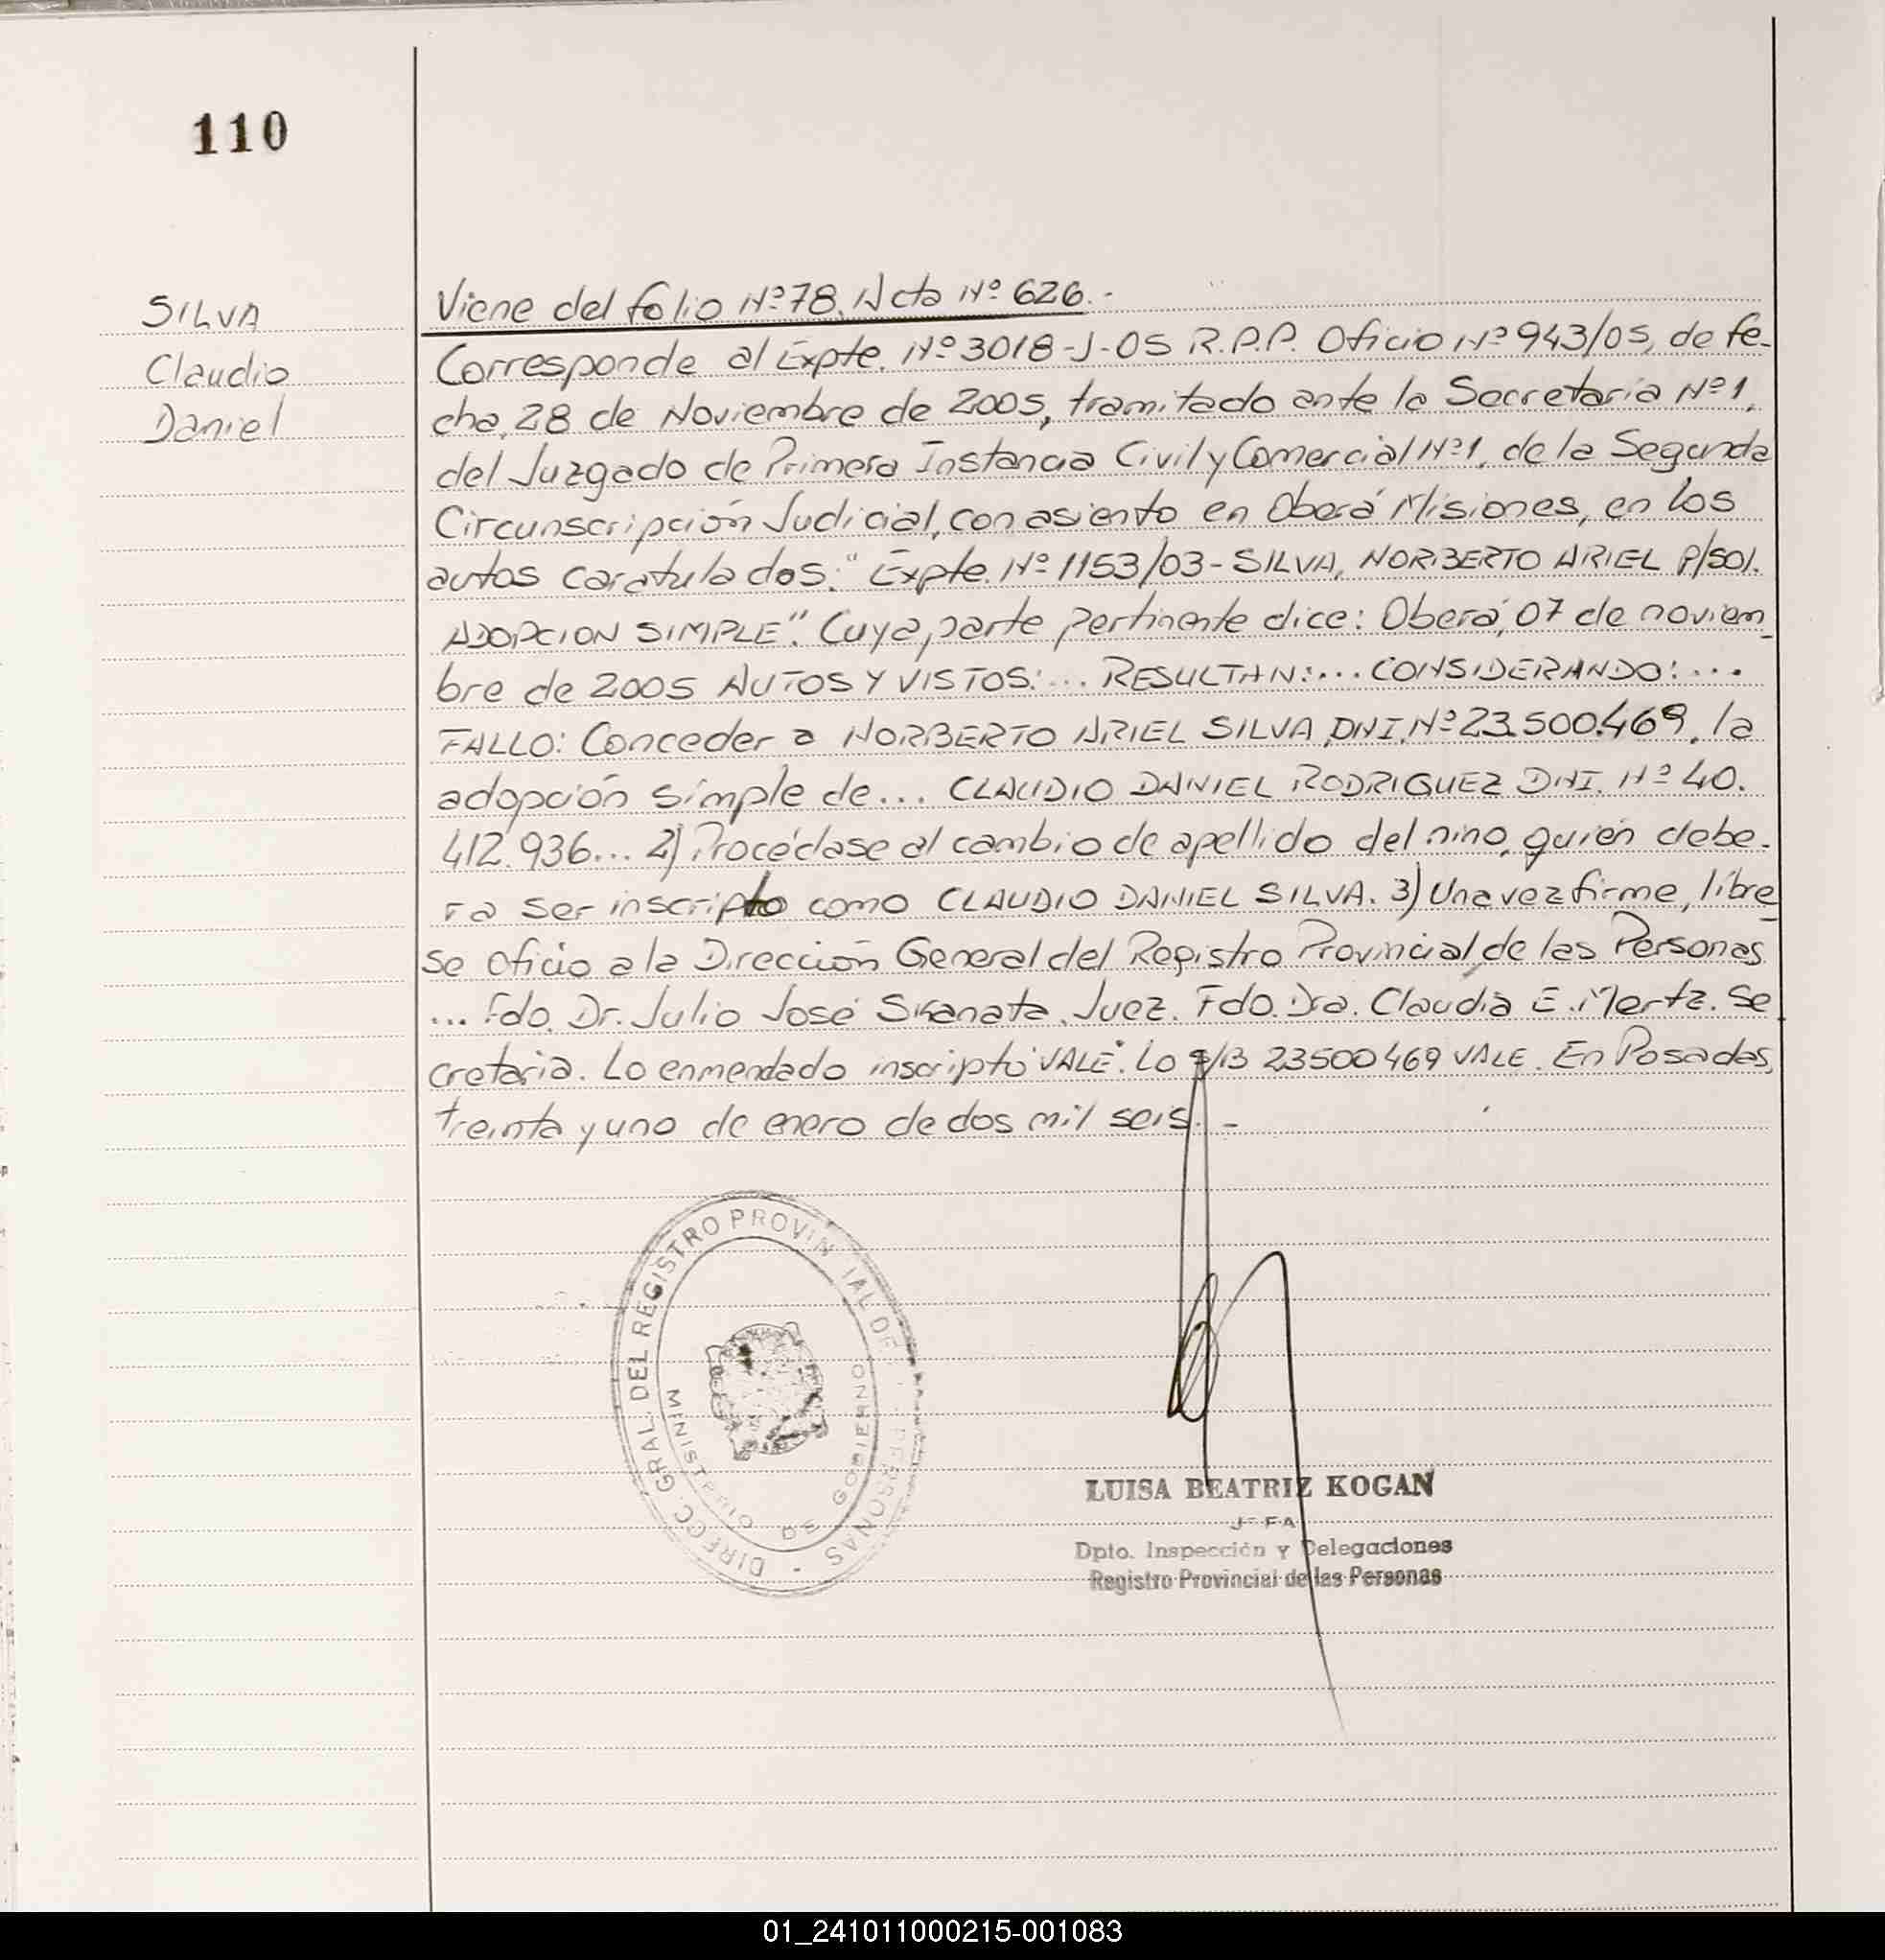 110
SILVA
Claudio
Daniel
Viene del folio Nº 78. Acta Nº 626.-
Corresponde al Expte. Nº 3018-J-05 R.P.P. Oficio Nº 943/05, de fe-
cha, 28 de Noviembre de 2005, tramitado ante la Secretaría Nº 1,
del Juzgado de Primera Instancia Civil y Comercial Nº 1, de la Segunda
Circunscripción Judicial, con asiento en Oberá Misiones, en los
autos caratulados: "Expte. Nº 1153/03 - SILVA, NORBERTO ARIEL P/SOL.
ADOPCION SIMPLE". Cuya parte pertinente dice: Oberá, 07 de noviem_
bre de 2005 AUTOS Y VISTOS:... RESULTAN:... CONSIDERANDO:...
FALLO: Conceder a NORBERTO ARIEL SILVA DNI. Nº 23.500.469, la
adopción simple de... CLAUDIO DANIEL RODRIGUEZ DNI. Nº 40.
412.936... 2) Procédase al cambio de apellido del niño, quién debe-
ra ser inscripto como CLAUDIO DANIEL SILVA. 3) Una vez firme, líbre_
se oficio a la Dirección General del Registro Provincial de las Personas
... Fdo. Dr. Julio José Skanata. Juez. Fdo. Dra. Claudia E. Mertz. Se_
cretaria. Lo enmendado inscripto "VALE". Lo s/B 23500469 VALE. En Posadas,
treinta y uno de enero de dos mil seis. -
DIRECC. GRAL. DEL REGISTRO PROVINCIAL DE PERSONAS -
MINISTERIO DE GOBIERNO
LUISA BEATRIZ KOGAN
JEFA
Dpto. Inspección y Delegaciones
Registro Provincial de las Personas
01_241011000215-001083